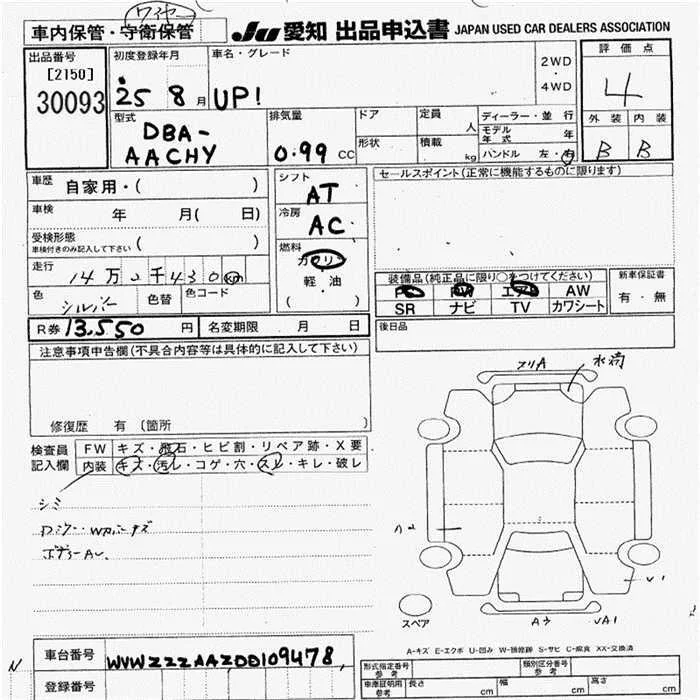 ワイヤー
車内保管・守衛保管
JU 愛知 出品申込書 JAPAN USED CAR DEALERS ASSOCIATION
出品番号
[2150]
30093
初度登録年月
25 8月
車名・グレード
UP!
2WD
・
4WD
評価点
4
外装 内装
B B
型式
DBA-
AACHY
排気量
0.99 CC
ドア
形状
定員 人
積載 kg
ディーラー・並行
モデル年式 年
ハンドル 左・右
車歴 自家用・( )
車検 年 月( 日)
受検形態
車検付きのみ記入して下さい ( )
走行
色
シルバー
色替
色コード
シフト
AT
冷房
AC
燃料
ガソリン
軽・油
( )
セールスポイント(正常に機能するものに限ります)
装備品(純正品に限り○をつけてください)
PS PW エアB AW
SR ナビ TV カワシート
新車保証書
有・無
R券 13,550 円
名変期限 月 日
後日品
注意事項申告欄(不具合内容等は具体的に記入して下さい)
修復歴 有 〔箇所 〕
検査員
記入欄
FW キズ・飛石・ヒビ割・リペア跡・X要
内装 キズ・汚レ・コゲ・穴・スレ・キレ・破レ
シミ
スペア
A-キズ E-エクボ U-凹み W-補修跡 S-サビ C-腐食 XX-交換済
車台番号
WVWZZZAAZDD109478
登録番号
形式指定番号
参考
類別区分番号
参考
車庫証明用
参考
長さ cm
幅 cm
高さ cm
N